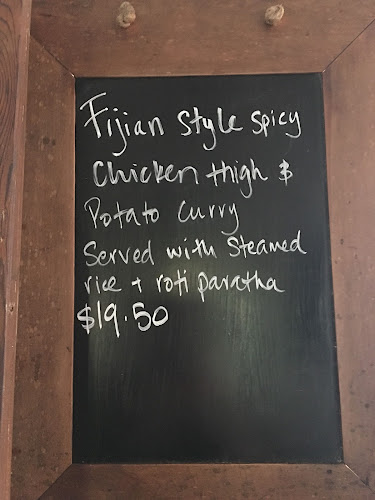 Fijian Style Spicy
Chicken thigh &
Potato Curry
Served with Steamed
rice + roti paratha
$19.50